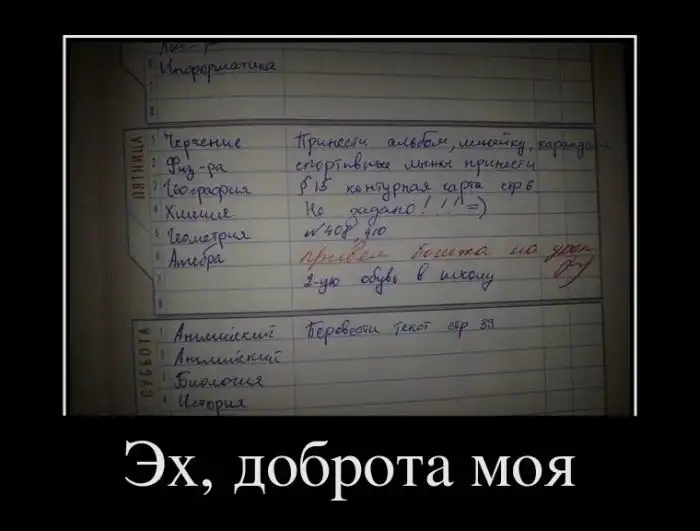 Физ-р
6 Информатика
7
8
ПЯТНИЦА
1 Черчение Принести альбом, линейку, карандаш
2 Физ-ра спортивные лыжи принести
3 География § 15 контурная карта стр 6
4 Химия Не задано! ! ! =)
5 Геометрия №408, 410
6 Алгебра привёл бомжа на урок
7 2-ую обувь в школу
8
СУББОТА
1 Английский Перевести текст стр 89
2 Английский
3 Биология
4 История
Эх, доброта моя